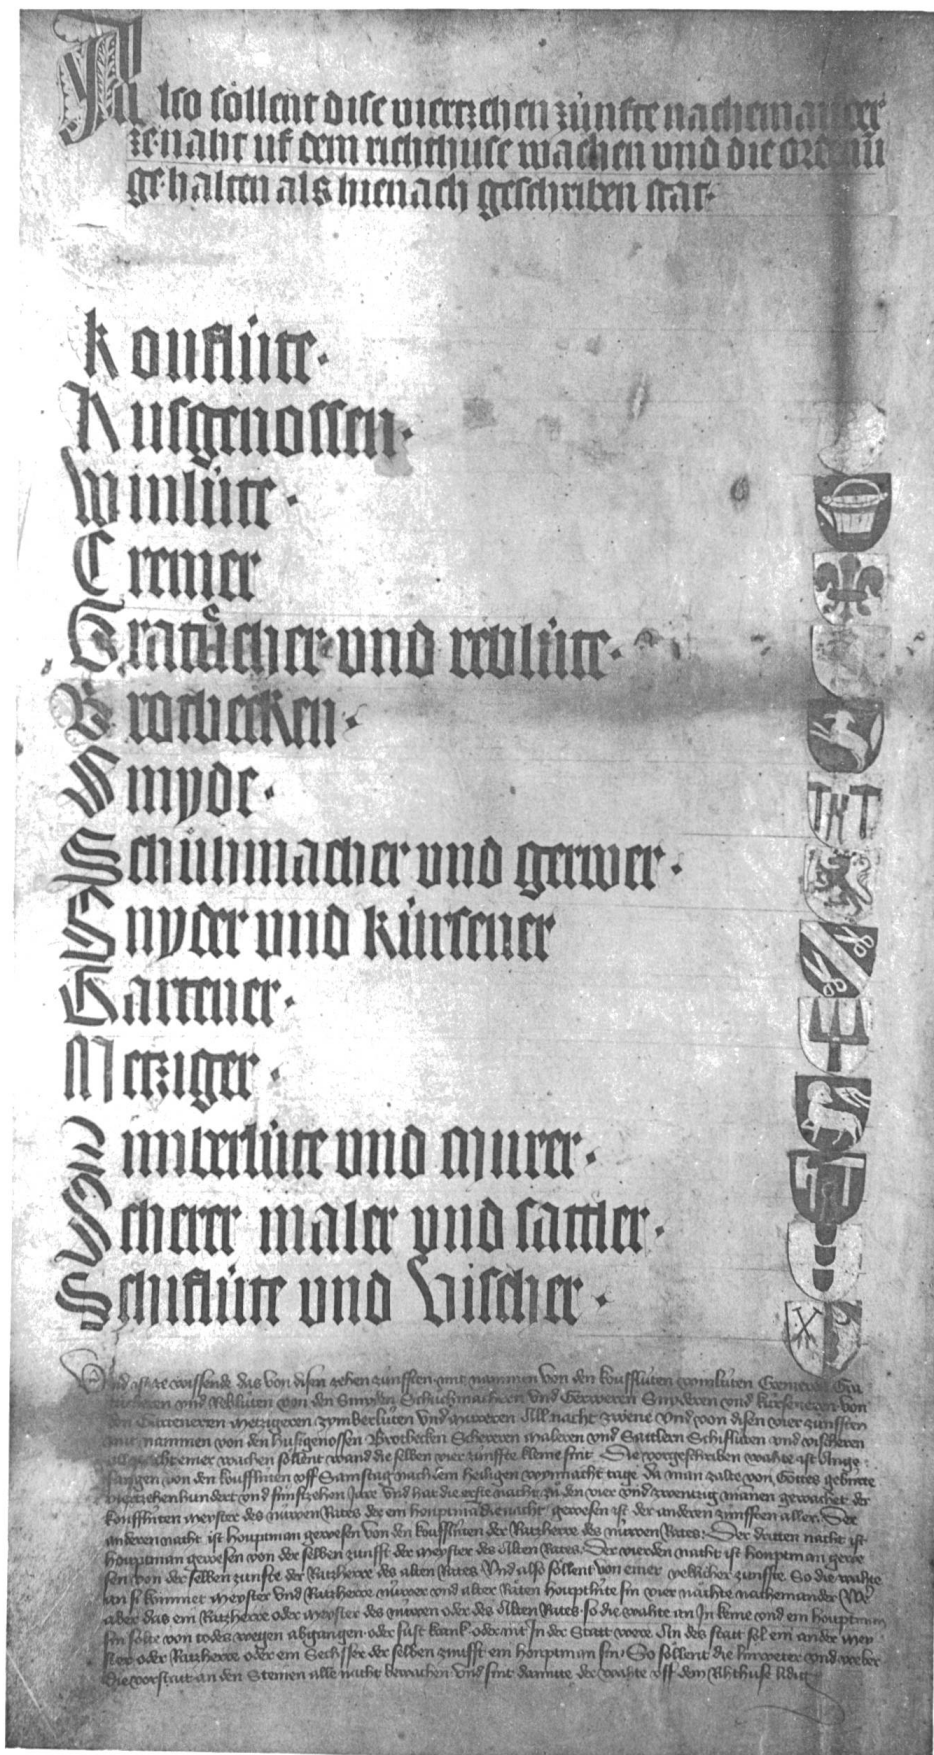 Also söllent dise viertzehen zünfte nacheinander
ze naht uf dem richthuse wachen und die ordenu
ge halten als hienach geschriben stat·
Kouflüte·
Husgenossen·
Winlüte·
Cremer
Gratůcher und reblüte·
Brotbecken·
Smyde·
Schuhmacher und gerwer·
Snyder und kürsener
Gartener·
Metziger·
Zimberlüte und Murer·
Scherer maler und sattler·
Schiflüte und Vischer·
Und ist ze wissende das von disen zehen zünfften mit nammen von den koufflüten winlüten Cremeren Gra
tücheren und Reblüten von den Smyden Schuchmacheren und Gerweren Snyderen und kürseneren von
den Garteneren Metzigeren zymberlüten und mureren All nacht zwene Und von disen vier zünfften
mit nammen von den husgenossen Brotbecken Schereren maleren und Sattlern Schiflüten und vischeren
all nacht einer wachen söllent wand die selben vier zünffte kleine sint· Die vorgeschriben wahte ist Ange
fangen von den koufflüten uff Samstag nach dem heiligen wynnacht tage Da man zalte von Gottes gebürte
viertzehenhundert und fünfftzehen Jare Und hat die erste nacht zu den vier und zwentzig mannen gewachet der
koufflüten meyster des nüwen Rates der ein houptman die nacht gewesen ist der anderen zünfften aller· Der
anderen nacht ist houptman gewesen von den koufflüten der Ratzherre des nüwen Rates· Der dritten nacht ist
houptman gewesen von der selben zunfft der meyster des Alten Rates· Der vierden nacht ist houptman gewe
sen von der selben zunfte der Ratzherre des alten Rates Und also söllent von einer yeklicher zunffte So die wahte
an si kommet meyster und Ratzherre nüwer und alter Räten houptlüte sin vier nächte nacheinander We
aber das ein Ratzherre oder meyster des nüwen oder des Alten Rates so die wahte an In keme und ein houptman
sin solte von todes wegen abgangen oder sust krank oder nit In der Statt were An des statt sol ein ander mey
ster oder Ratzherre oder ein Sechsser der selben zunfft ein houptman sin· So söllent die linweter und weber
die vorstatt an den Steinen alle nacht bewachen Und sint damitte der wahte uff dem Rihthuse lidig